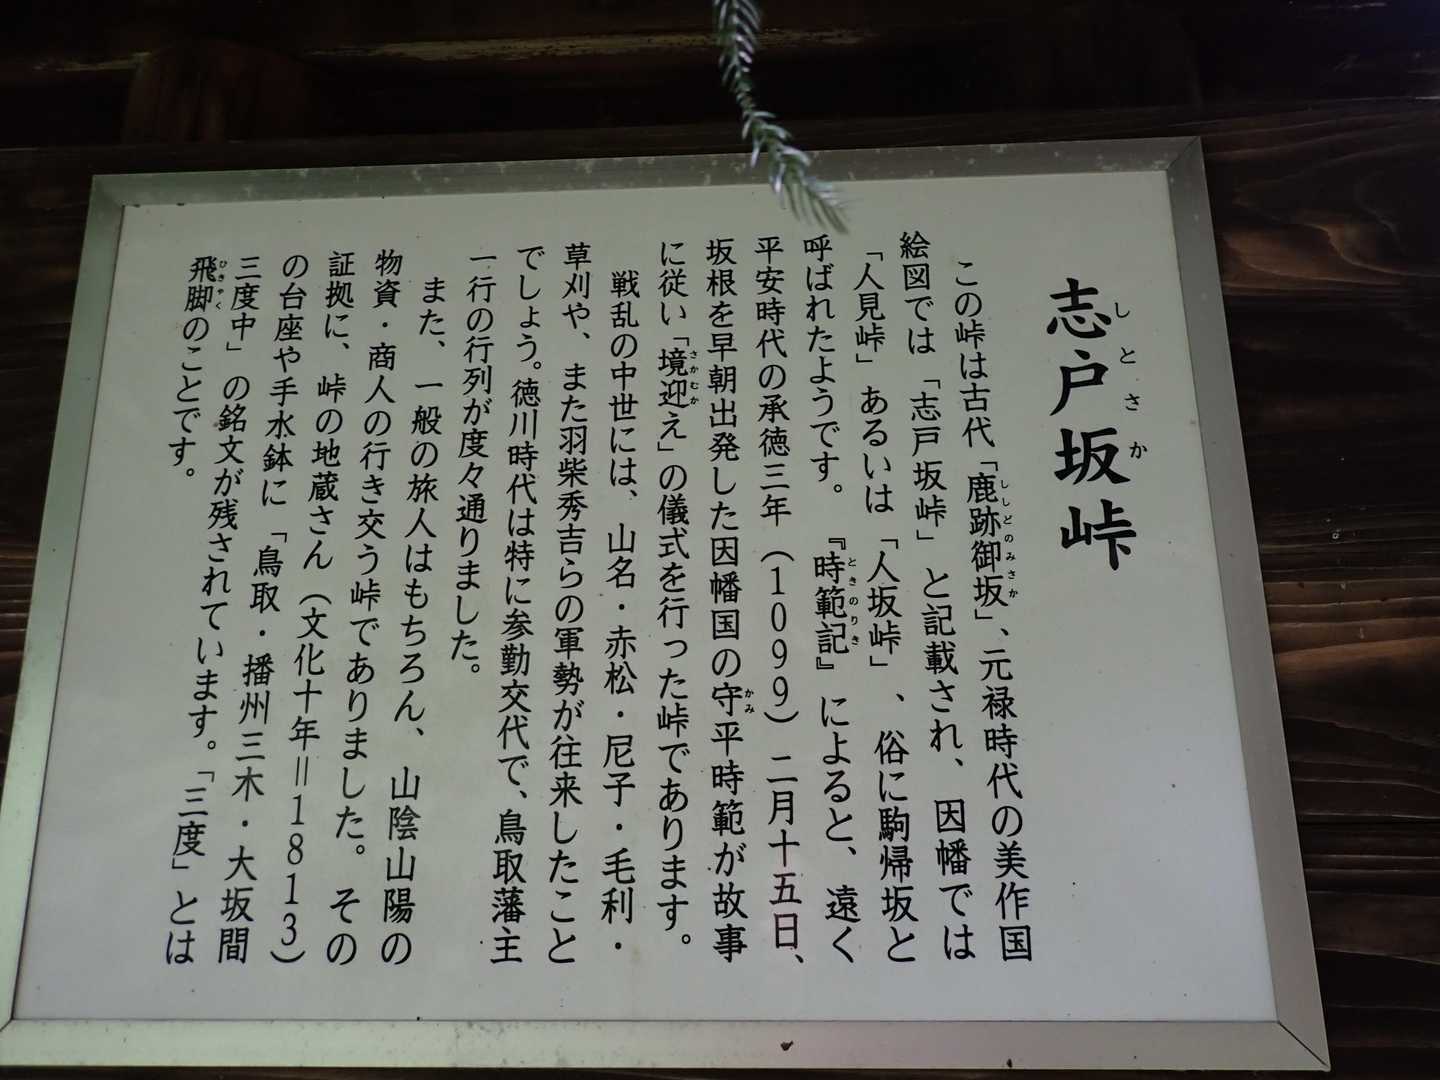 志戸坂峠
しとさか
この峠は古代「鹿跡御坂」、元禄時代の美作国
ししどのみさか
絵図では「志戸坂峠」と記載され、因幡では
「人見峠」あるいは「人坂峠」、俗に駒帰坂と
呼ばれたようです。『時範記』によると、遠く
ときのりき
平安時代の承徳三年（１０９９）二月十五日、
坂根を早朝出発した因幡国の守平時範が故事
かみ
に従い「境迎え」の儀式を行った峠であります。
さかむか
戦乱の中世には、山名・赤松・尼子・毛利・
草刈や、また羽柴秀吉らの軍勢が往来したこと
でしょう。徳川時代は特に参勤交代で、鳥取藩主
一行の行列が度々通りました。
また、一般の旅人はもちろん、山陰山陽の
物資・商人の行き交う峠でありました。その
証拠に、峠の地蔵さん（文化十年＝１８１３）
の台座や手水鉢に「鳥取・播州三木・大坂間
三度中」の銘文が残されています。「三度」とは
飛脚のことです。
ひきゃく